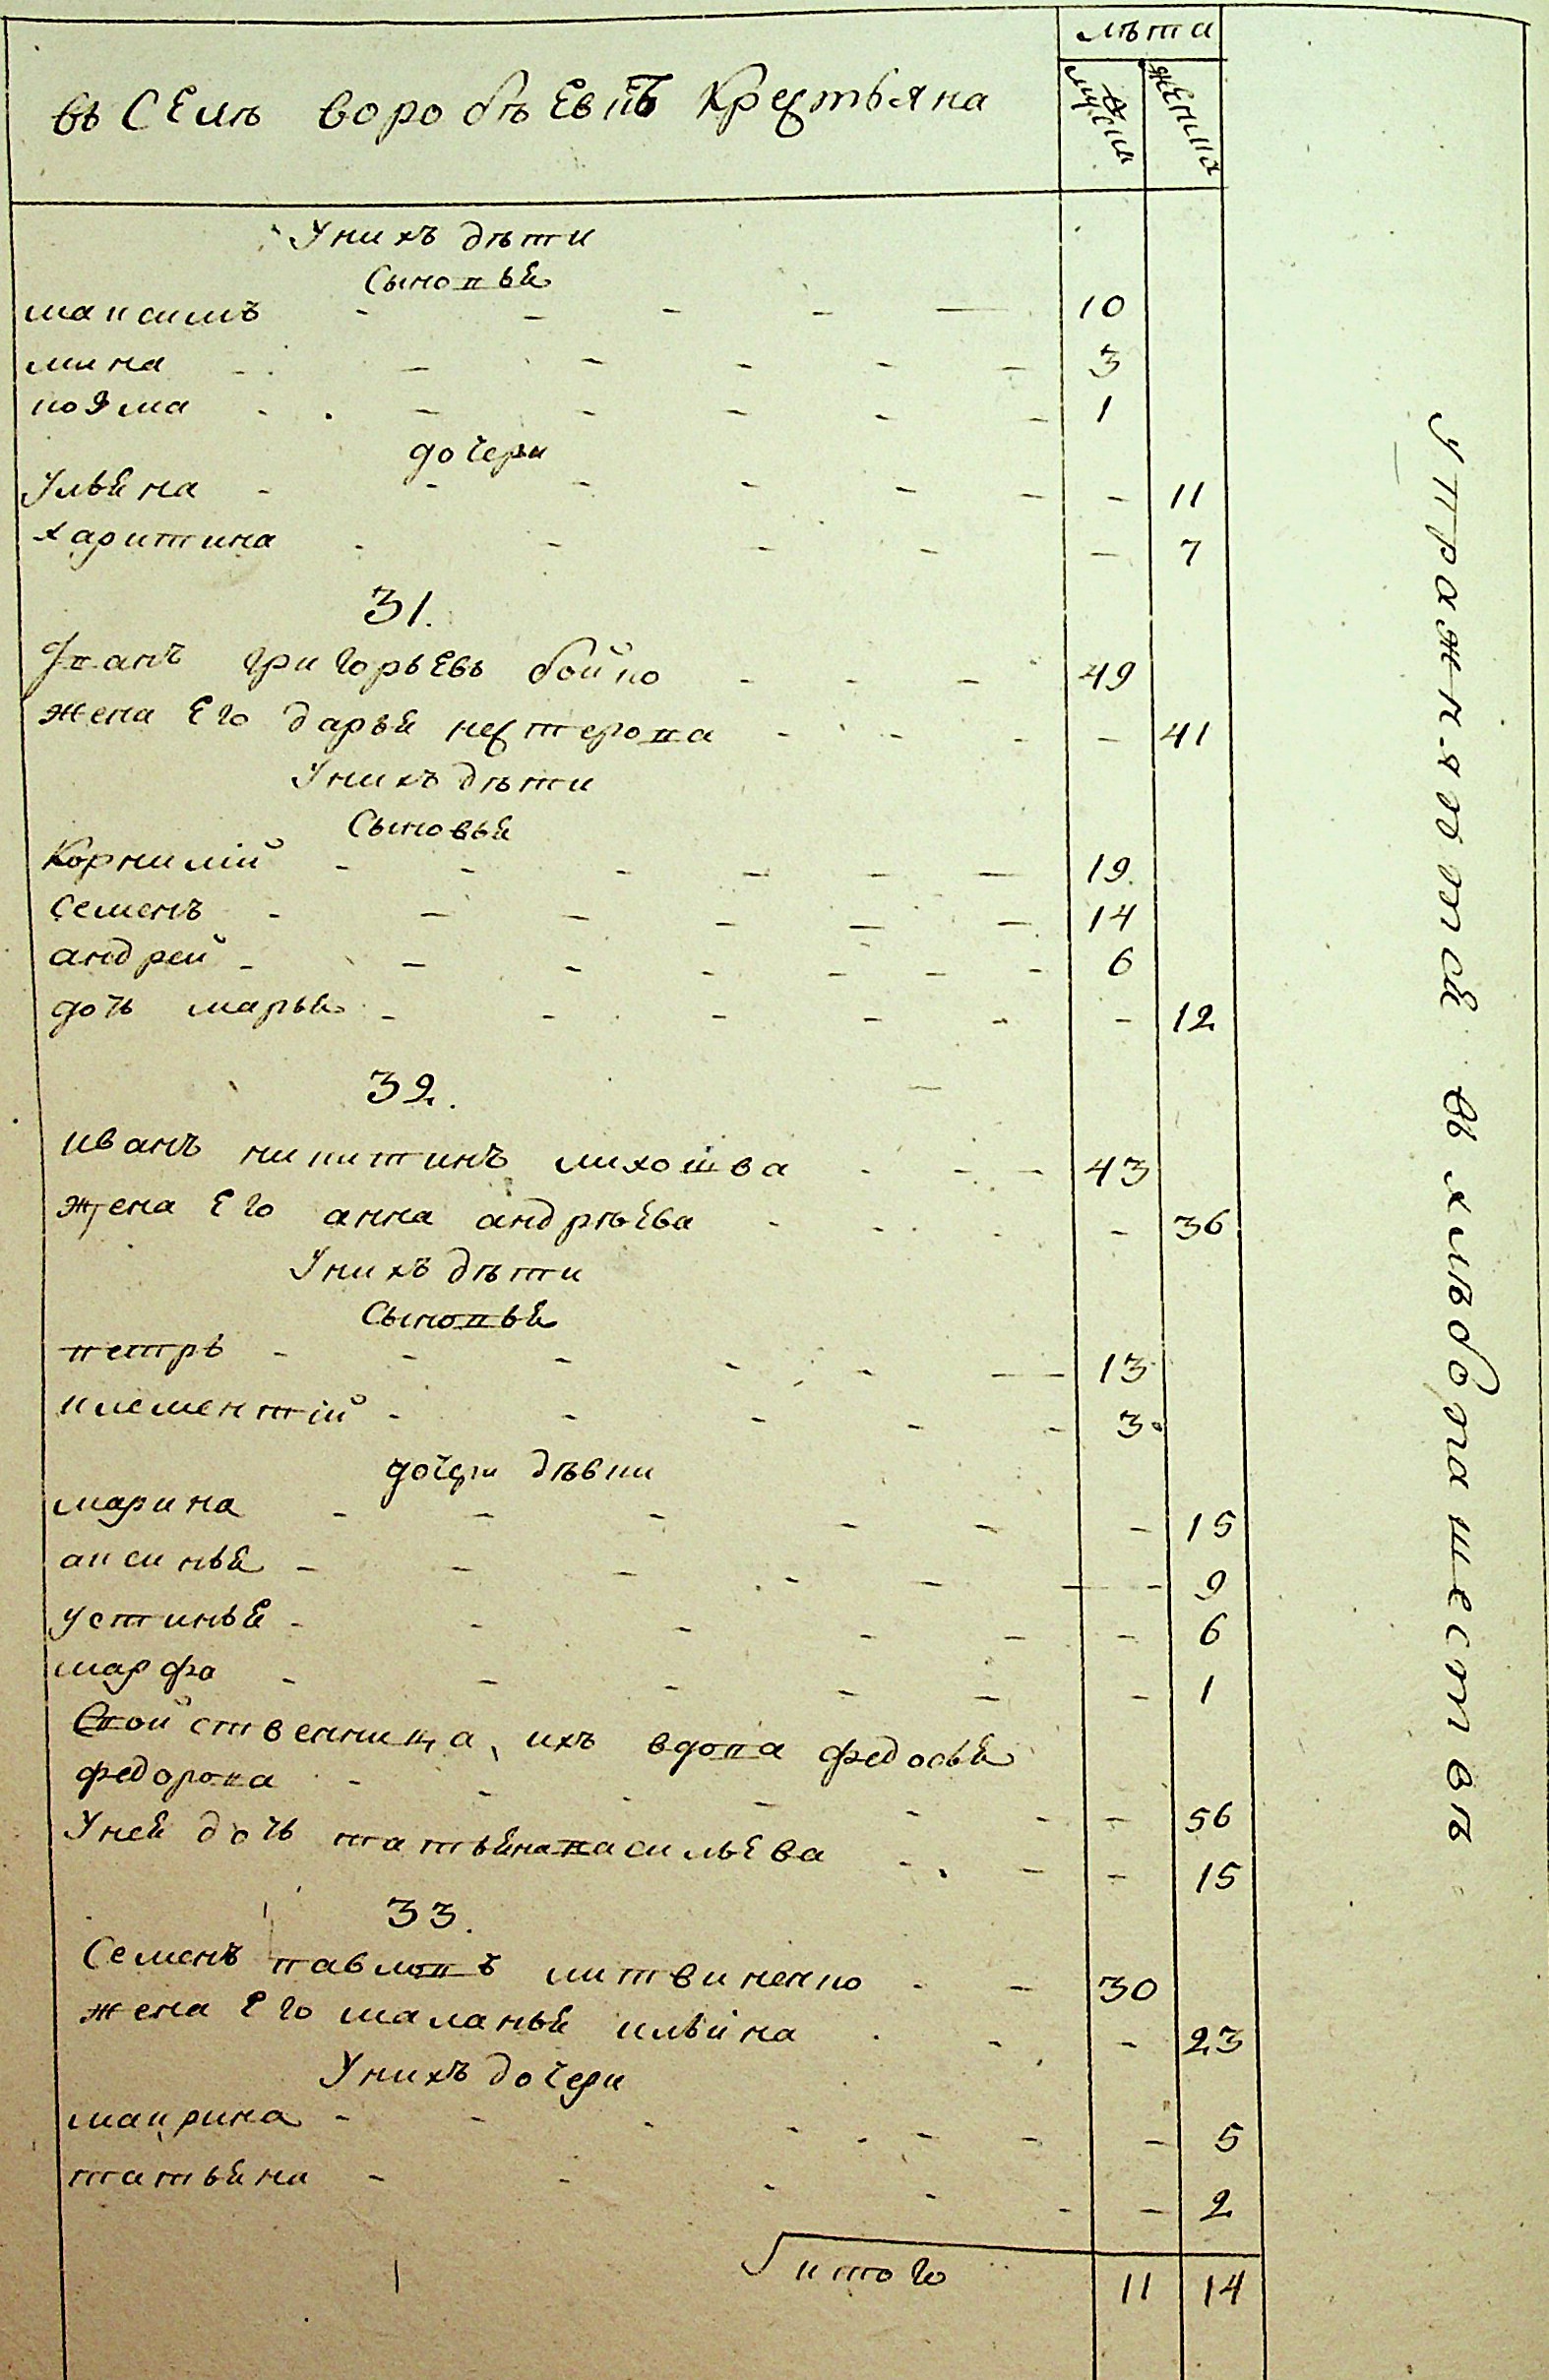 въ СЕлѣ воробъЕвкѣ КрестьЯна
лѣта
мужия
женция
У нихъ дѣти
Сыновья
максимъ - - - - - 10
мина - - - - - - 3
козма - - - - - - 1
дочери
Ульяна - - - - - - - 11
харитина - - - - - 7
31.
Иванъ григорьЕвъ бойко - - - 49
жена Его дарья нестерова - - - - 41
У нихъ дѣти
Сыновья
Корнилій - - - - - - 19
семенъ - - - - - - 14
андрей - - - - - - - 6
дочь марья - - - - - - 12
32.
иванъ никитинъ лихошва - - - 43
жена Его анна андрѣева - - - - 36
У нихъ дѣти
Сыновья
петръ - - - - - - 13
климентій - - - - - 3
дочери дѣвки
марина - - - - - - 15
аксинья - - - - - - - 9
устинья - - - - - - 6
марфа - - - - - - 1
Свойственница ихъ вдова федосья
федорова - - - - - - - 56
У ней дочь татьяна васильЕва - - - - 15
33.
Семенъ павловъ литвиненко - - 30
жена Его маланья ильина - - - 23
У нихъ дочери
маврина - - - - - - - - 5
татьяна - - - - - - 2
итого 11 14
упражняются въ хлебопашествѣ